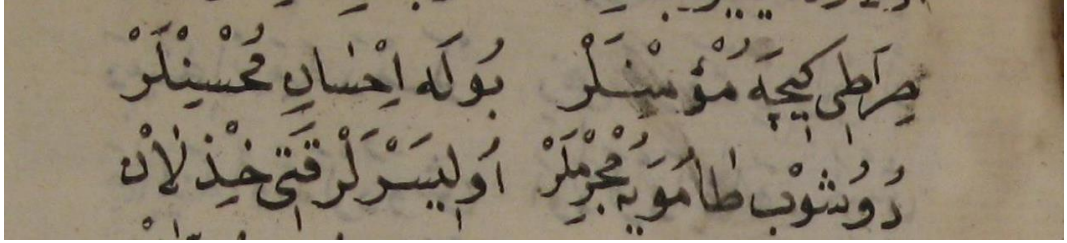 صِرَاطِى كَچَه مُؤْمِنْلَرْ بُولَه اِحْسَانِ مُحْسِنْلَرْ
دُوشُوبْ طَامُويَه مُجْرِمْلَرْ اُولِيسَرْلَرْ قَتِى خِذْلَانْ